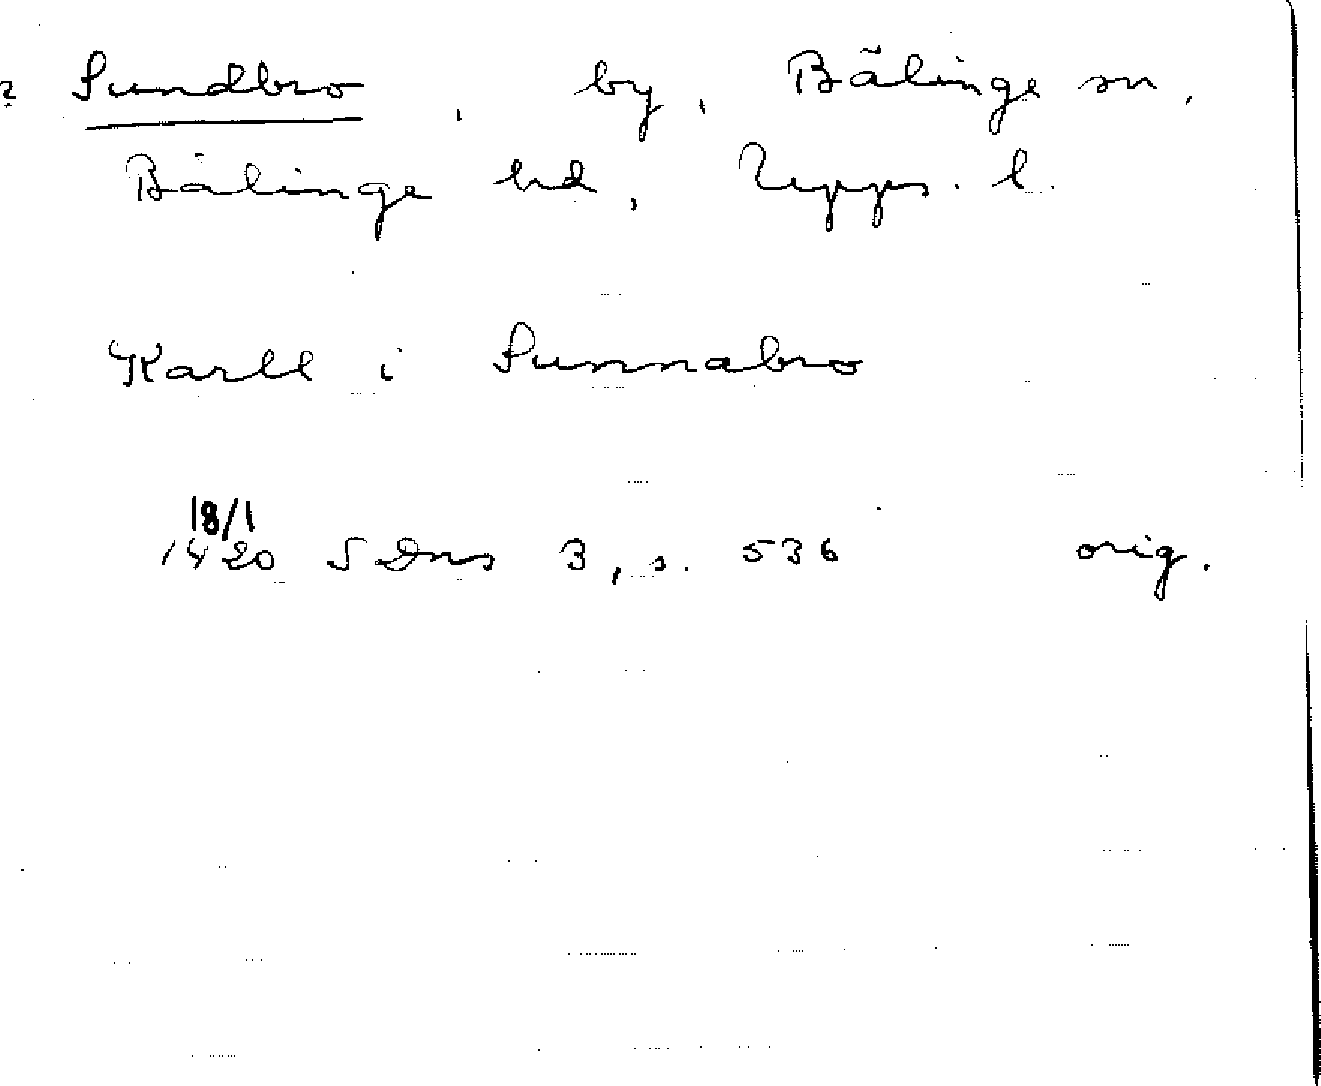 ? Sundbro, by, Bälinge sn,
Bälinge hd, Upps. l.
Karll i Sunnabro
18/1
1420 SDns 3, s. 536 orig.